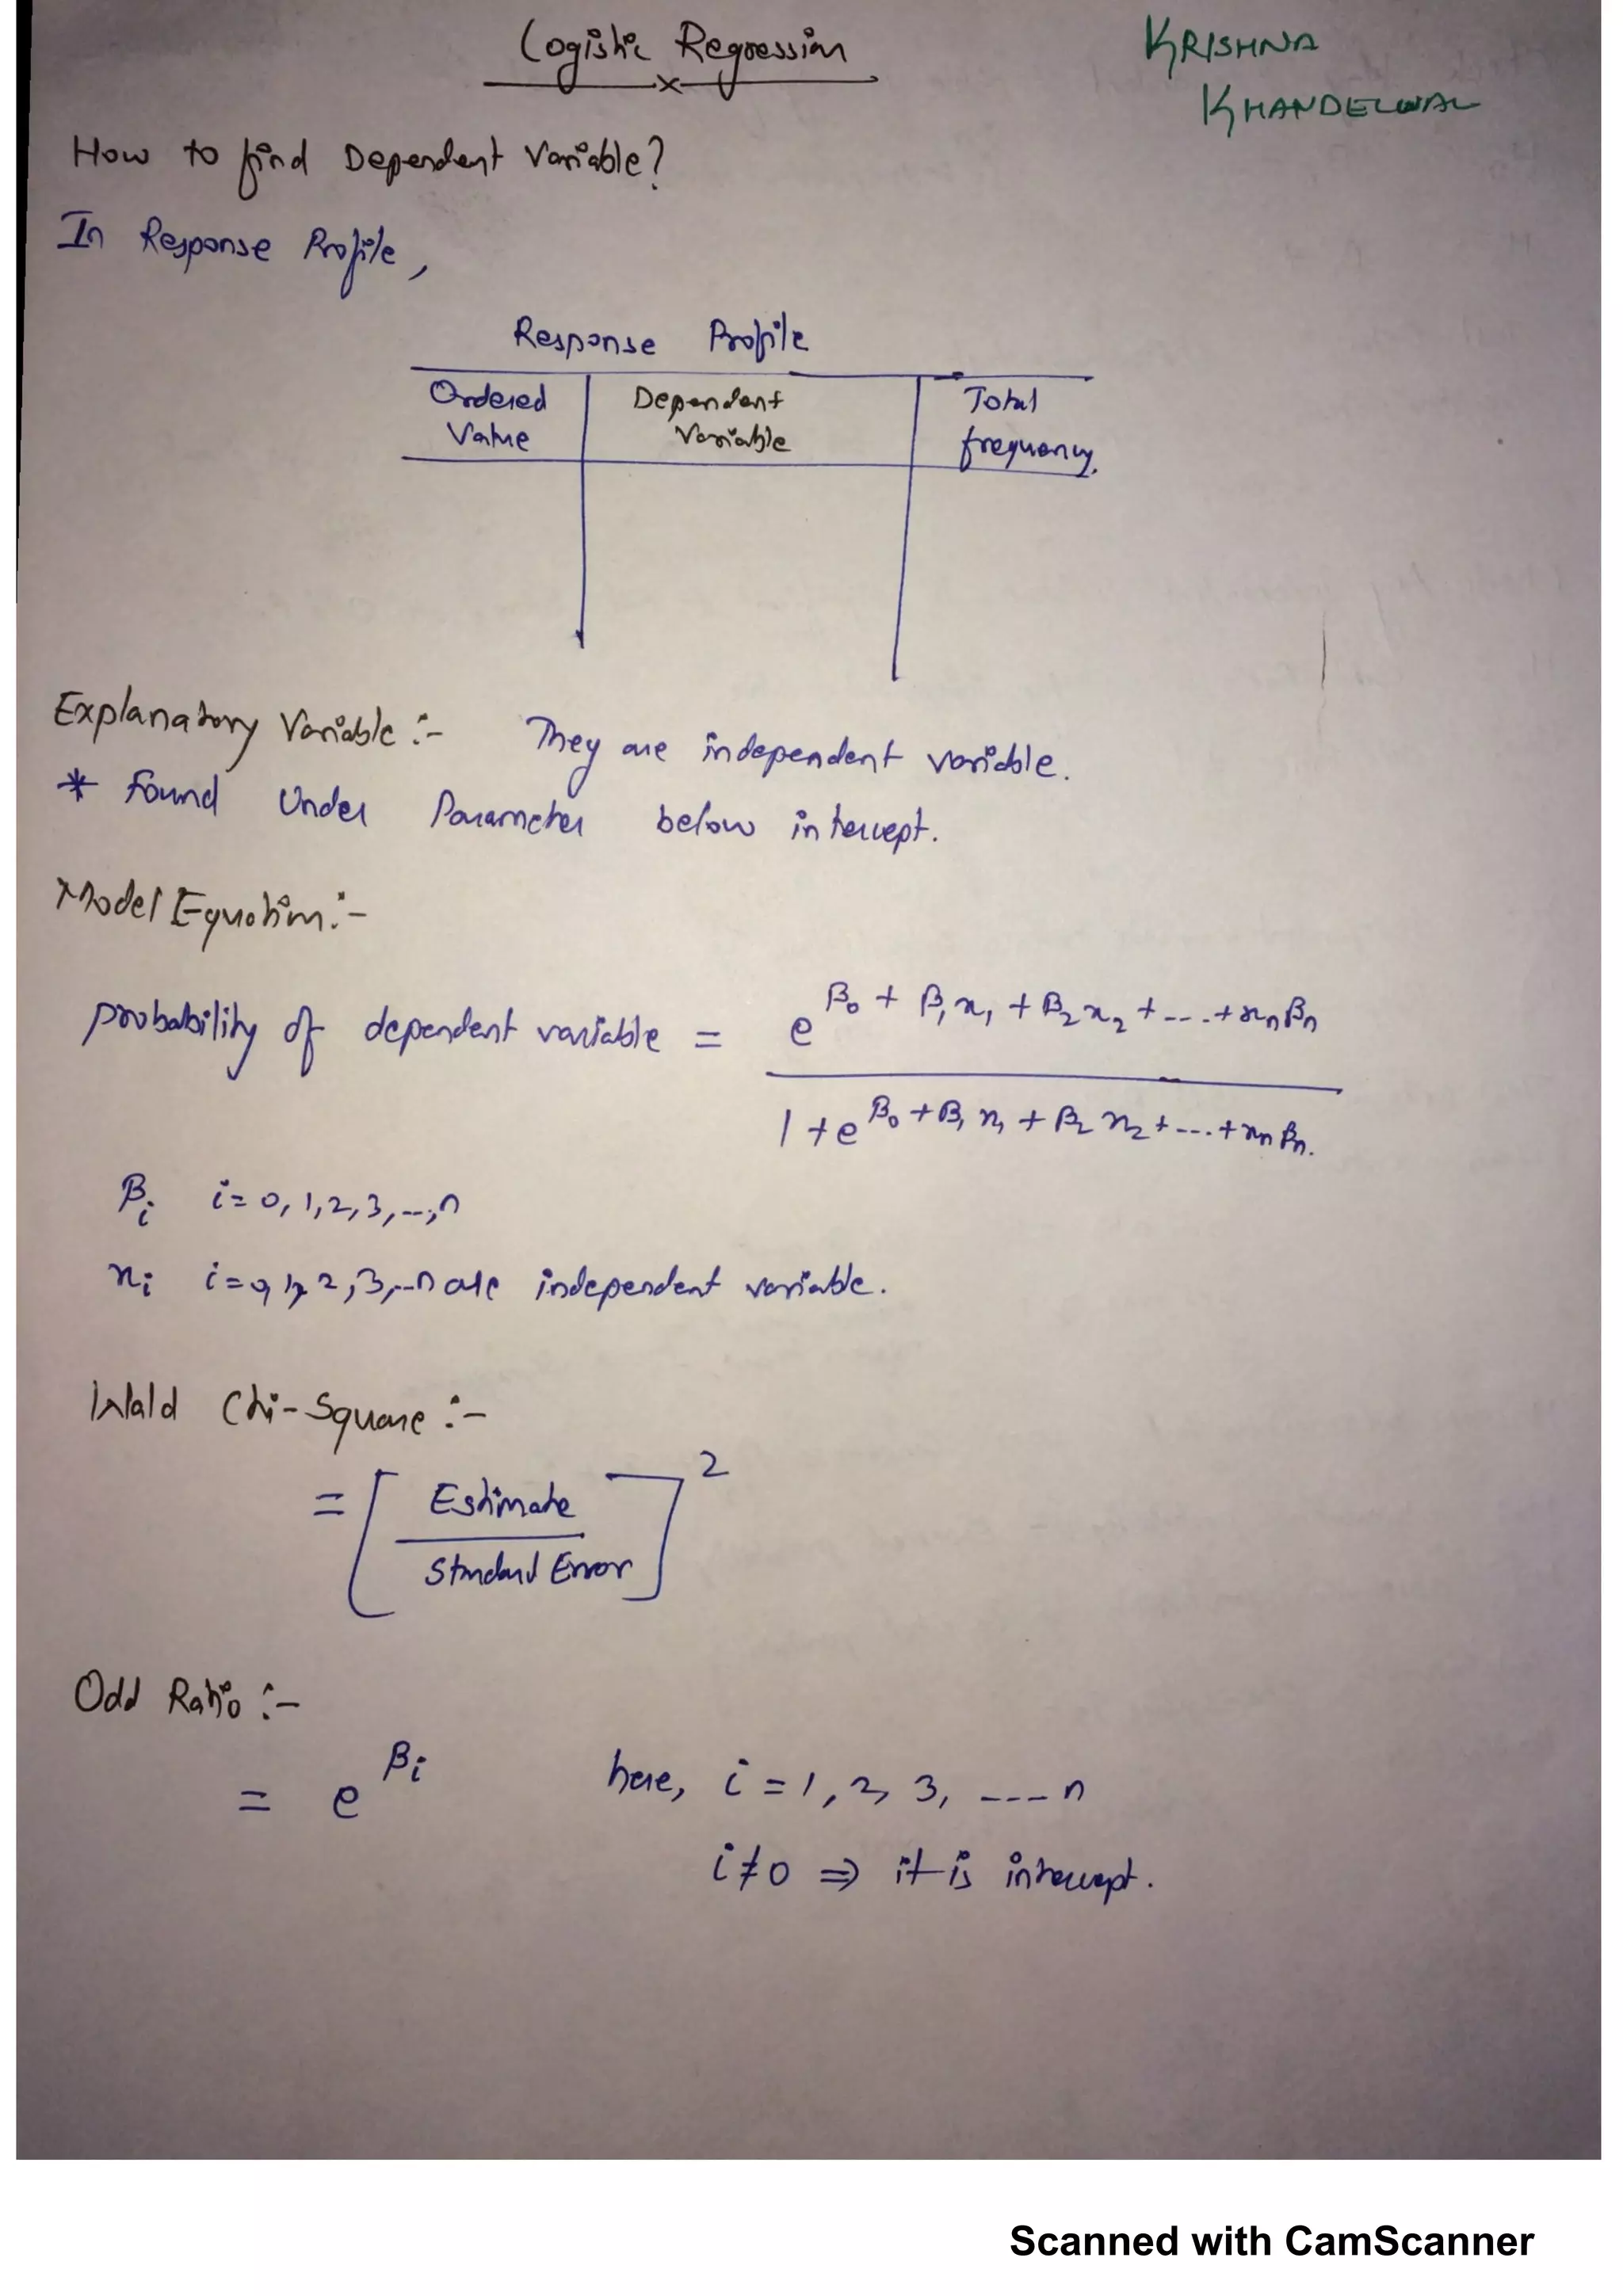 Logistic Regression
KRISHNA
KHANDELWAL
How to find Dependent Variable?
In Response Profile,
Response Profile
Ordered Value
Dependent Variable
Total frequency.
Explanatory Variable :- They are independent variable.
* Found Under Parameter below intercept.
Model Equation :-
probability of dependent variable = e^(β₀ + β₁x₁ + β₂x₂ + ... + xₙβₙ)
1 + e^(β₀ + β₁x₁ + β₂x₂ + ... + xₙβₙ).
βᵢ i = 0, 1, 2, 3, ..., n
xᵢ i = 0, 1, 2, 3, ... n are independent variable.
Wald Chi-Square :-
= [Estimate
Standard Error]²
Odd Ratio :-
= e^βᵢ here, i = 1, 2, 3, .... n
i ≠ 0 ⇒ it is intercept.
Scanned with CamScanner